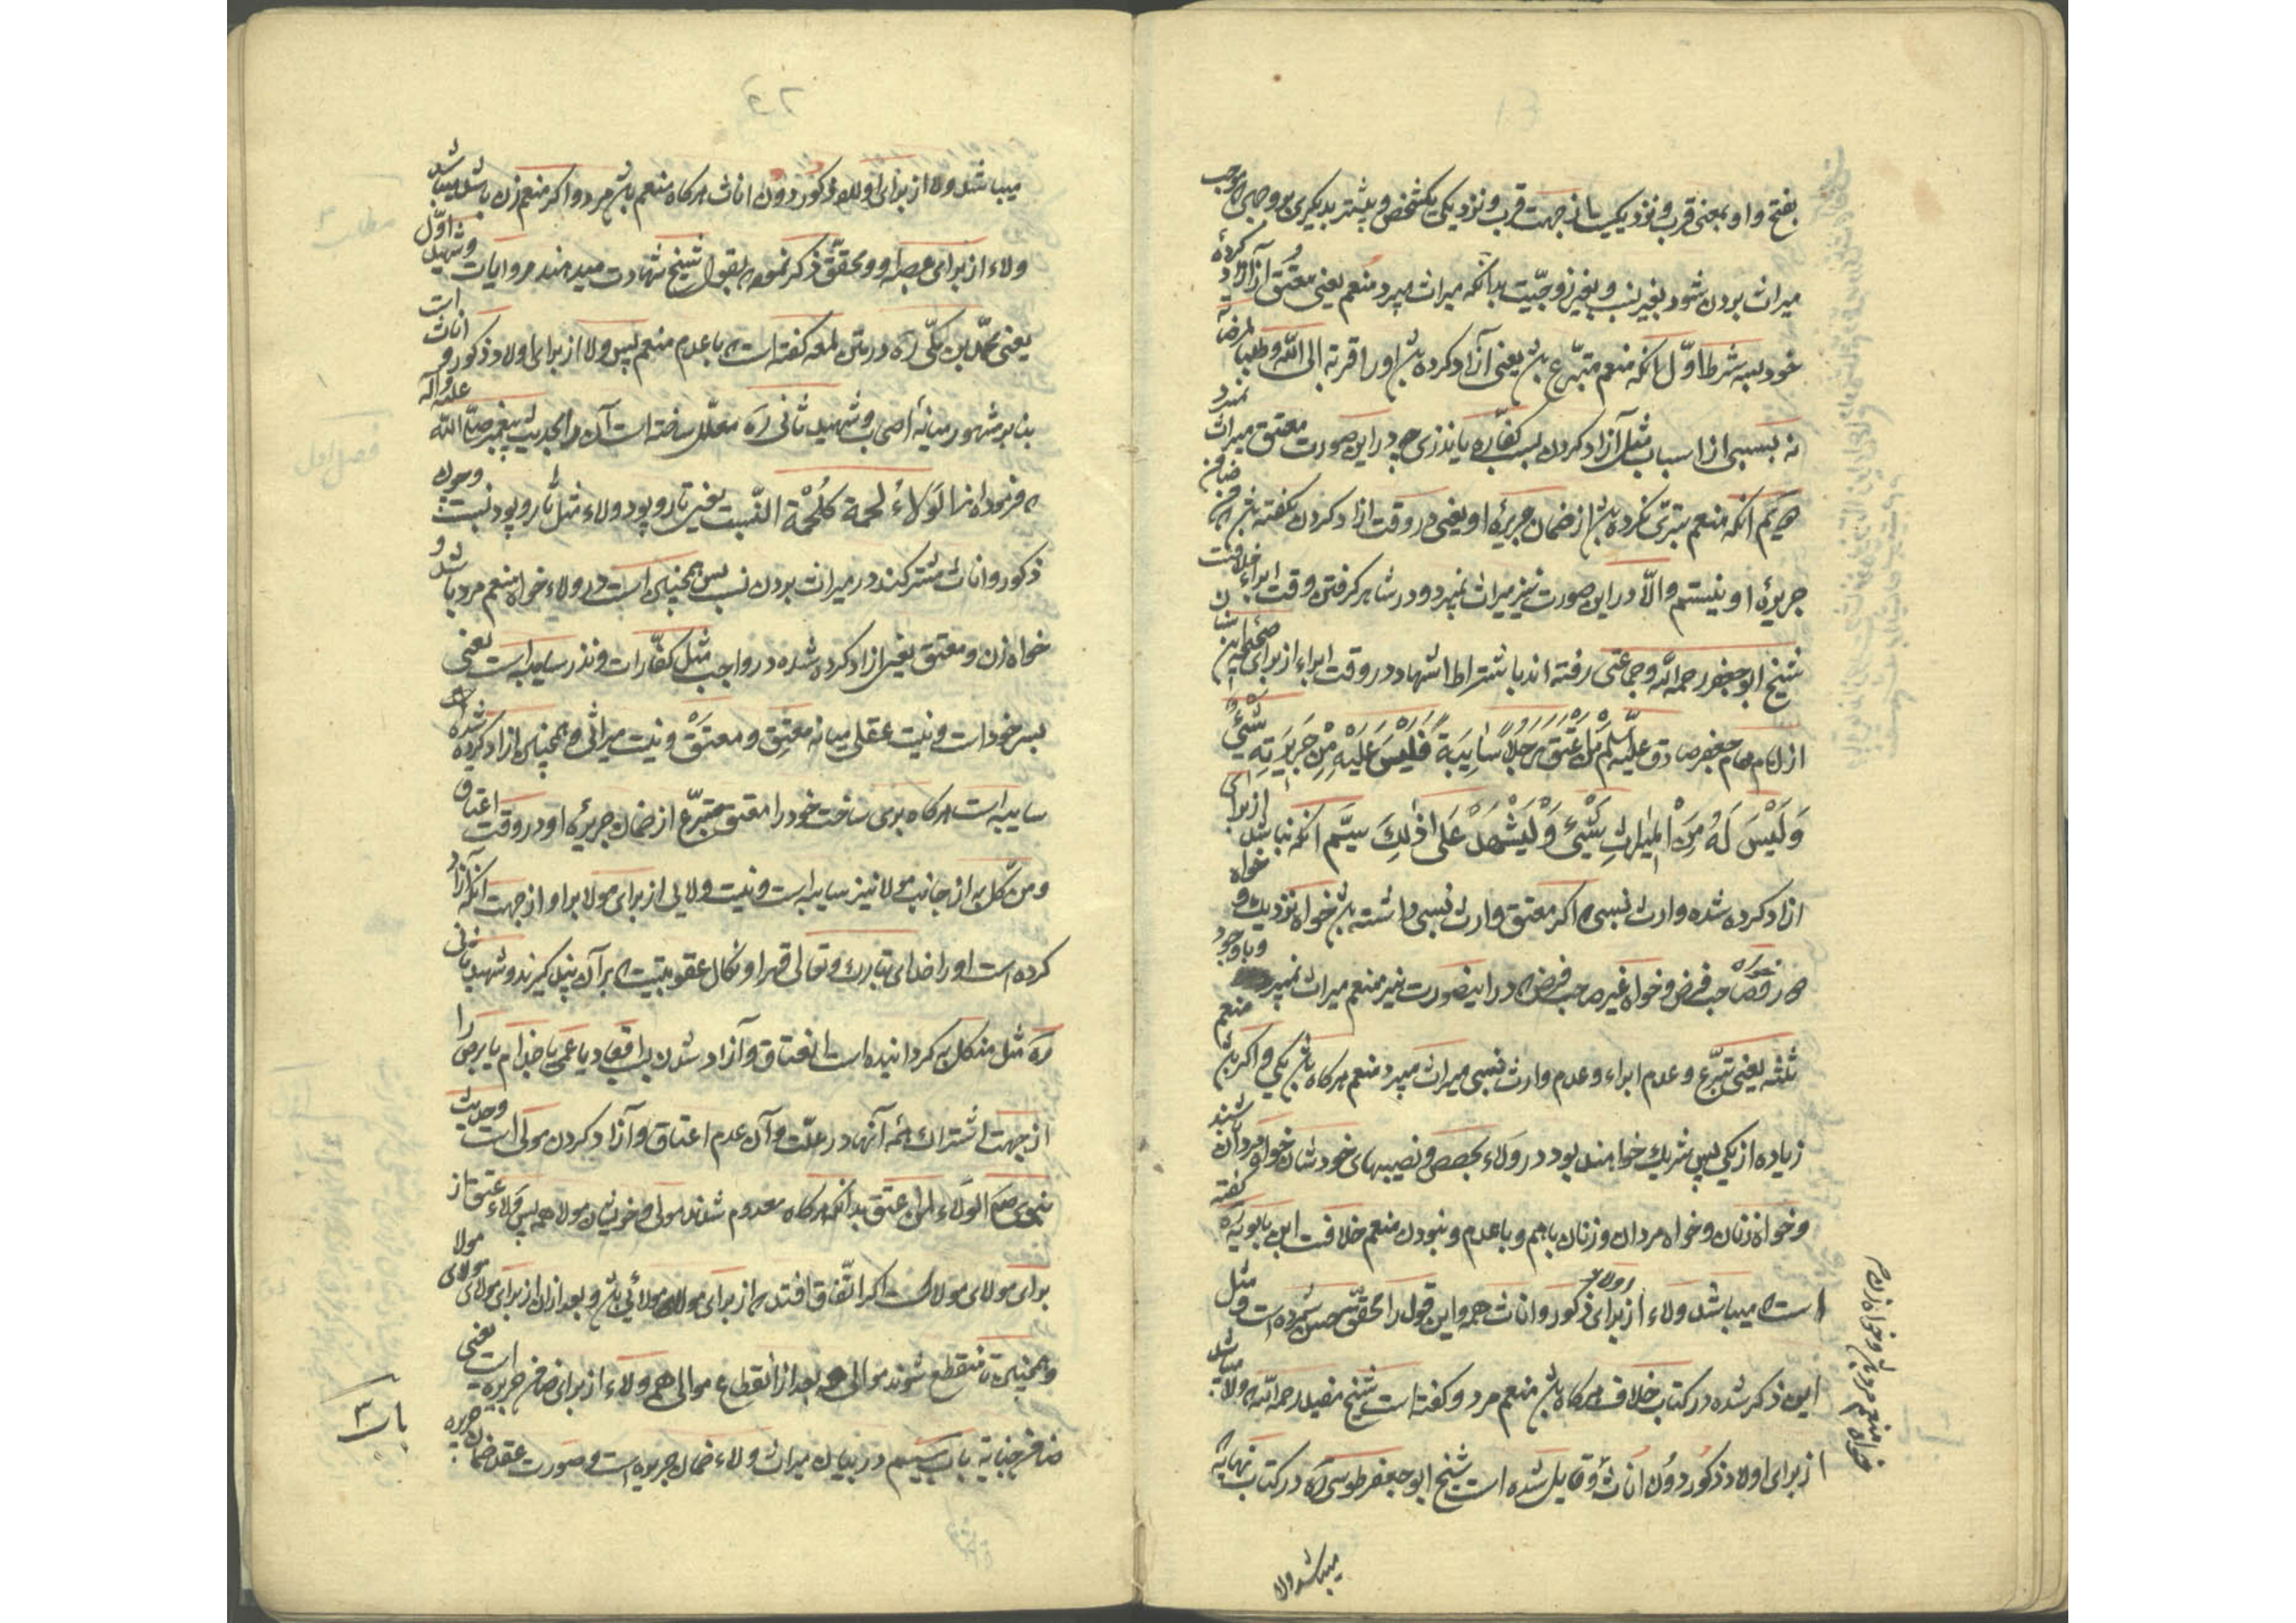 بفتح واو بمعنی قرب و نزدیکیست از جهت قرب و نزدیکی یکشخص و بیشتر بدیگری بر وجهی که موجب
میراث بردن شود بغیر نسب و بغیر زوجیّت بدانکه میراث میبرد منعم یعنی معتق از آزاد کردهٔ
خود بسه شرط اوّل آنکه منعم متبرّع باشد یعنی آزاد کرده باشد او را قربة الی اللّه و طلبا لمرضاته
نه بسببی از اسباب مثل آزاد کردن بسبب کفّاره یا نذری چه در این صورت معتق میراث نمیبرد
دویّم انکه منعم تبرّی نکرده باشد از ضمان جریرهٔ او یعنی در وقت ازاد کردن نکفته باشد که من ضامن
جریرهٔ او نیستم و الّا در این صورت نیز میراث نمیبرد و در شاهد کرفتن وقت ابراء خلافست
شیخ ابو جعفر رحمه اللّه و جماعتی رفته اند باشتراط اشهاد در وقت ابراء از برای صحیحه ابن سنان
از امام همام جعفر صادق علیه السلم مَنْ اَعْتَقَ رَجُلاً سٰایِبَةً فَلَیْسَ عَلَیْهِ مِنْ جَرِیرَتِهِ شَیْئٌ
وَ لَیْسَ لَهُ مِنَ الْمِیرٰاثِ شَیْئٌ وَ لْیُشْهِدْ عَلیٰ ذٰلِکَ سیّم انکه نباشد از برای
ازاد کرده شده وارث نسبی که اکر معتق وارث نسبی داشته باشد خواه نزدیک و خواه
دور و صاحب فرض و خواه غیر صاحب فرض که در اینصورت نیز منعم میراث نمیبرد و با وجود
ثلثه یعنی تبرّع و عدم ابراء و عدم وارث نسبی میراث میبرد منعم هرکاه باشد یکی و اکر باشد منعم
زیاده از یکی پس شریک خواهند بود در ولاء بحصص و نصیبهای خودشان خواه مردان باشند
و خواه زنان و خواه مردان و زنان باهم و با عدم و نبودن منعم خلافست ابن بابویه ره کفته
است که میباشد ولاء از برای اولاد ذکور و اناث همه و این قول را محقّق حسن شمرده است و مثل
این ذکر شده در کتاب خلاف هرکاه باشد منعم مرد و کفته است شیخ مفید رحمه اللّه که ولاء میباشد
از برای اولاد ذکور دون اناث و قایل شده است شیخ ابو جعفر طوسی ره در کتاب نهایه که
خواه منعم مرد باشد و خواه زن
میباشد ولا
میباشد ولا از برای اولاد ذکور دون اناث هرکاه منعم باشد مرد و اکر منعم زن باشد میباشد
ولاء از برای عصبه او و محقّق ذکر نموده که بقول شیخ شهادت میدهند روایات و شهید اوّل
یعنی محمّد بن مکّی ره در متن لمعه کفته است که با عدم منعم پس ولا از برای اولاد ذکور و اناث است
بنا بر مشهور میانه اصحاب و شهید ثانی ره معلّل ساخته است آن را بحدیث پیغمبر صلّی اللّه علیه و آله
که فرموده اند الوَلاءُ لُحمة کلُحْمَة النّسب یعنی تار و پود ولاء مثل تار و پود نسبت و چون
ذکور و اناث مشترکند در میراث بردن نسب پس همچنین است در ولاء خواه منعم مرد باشد و
خواه زن و معتق یعنی ازاد کرده شده در واجب مثل کفّارات و نذر سایبه است یعنی
بسر خود است و نیست عقلی میانه معتِق و معتَق و نیست میراثی و همچنین ازاد کرده شده
سایبه است هرکاه بری ساخت خود را معتق متبرّع از ضمان جریرهٔ او در وقت اعتاق
و من نکل به از جانب مولا نیز سایبه است و نیست ولایی از برای مولا بر او از جهت انکه آزاد
کرده است او را خدای تبارک و تعالی قهرا و نکال عقوبتیست که بر آن پند کیرند و شهید ثانی
ره مثل منکل به کردانیده است انعتاق و آزاد شدن باقعاد یا عمی یا جذام یا برص را
از جهت اشتراک همه آنها در علّت و آن عدم اعتاق و آزاد کردن مولی است و حدیث
نبوی صم الوَلاء لمن عتق بدانکه هرکاه معدوم شدند مولی و خویشان مولا همه پس ولاء عتق از
برای مولای مولاست اکر اتّفاق افتد که از برای مولا مولائی باشد و بعد ازان از برای مولای مولای مولا
و همچنین تا منقطع شوند موالی همه بعد از انقطاع موالی همه ولاء از برای ضامن جریره است یعنی
ضامن جنایه باب سیّم در بیان میراث ولاء ضمان جریره است و صورت عقد ضمان جریره
باب ۳